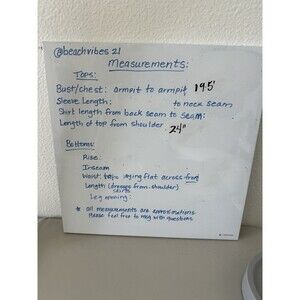 @beachvibes 21
Measurements:
Tops:
Bust/chest: armpit to armpit 19.5"
Sleeve Length: to neck seam
Shirt length from back seam to seam:
Length of top from shoulder 24"
Bottoms:
Rise:
Inseam
Waist: laying flat across front
Length (dresses from shoulder)
skirts
Leg opening:
* all measurements are approximations
Please feel free to msg with questions